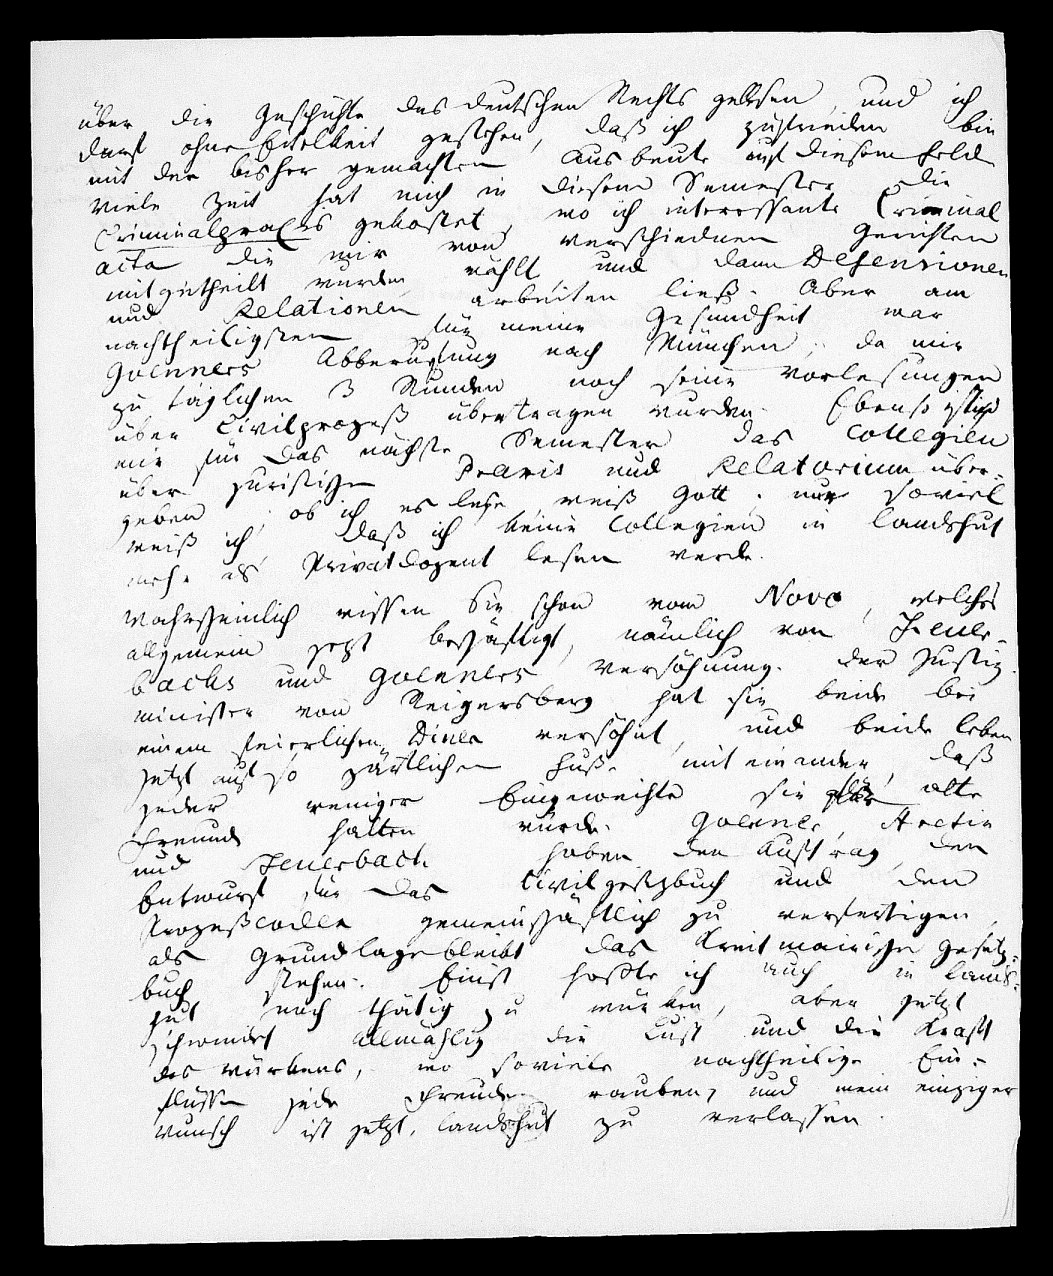 über die Geschichte des deutschen Rechts gelesen, und ich
darf ohne Eitelkeit gestehen, daß ich zufrieden bin
mit der bisher gemachten Ausbeute auf diesem Felde
viele Zeit hat mich in diesem Semester die
Criminalpraxis gekostet, wo ich interessante Criminal
acta die mir von verschiednen Gerichten
mitgetheilt wurden, wählt und dann Defensionen
und Relationen arbeiten ließ. Aber am
nachtheiligsten für meine Gesundheit war
Goenners Abberufung nach München, da mir
zu täglichen 3 Stunden noch seine Vorlesungen
über Civilprozeß übertragen wurden. Ebenso ist
mir für das nächste Semester das Collegien
über juristische Praxis und Relatorium über-
geben, ob ich es lese weiß Gott. nur soviel
weiß ich, daß ich keine Collegien in Landshut
mehr als Privatdozent lesen werde.
Wahrscheinlich wissen Sie schon vom Novo, welches
allgemein jezt beschäftigt, nämlich von Feuer-
bachs und Goenners Versöhnung. Der Justiz
minister von Reigersberg hat sie beide bei
einem feierlichen Diner versöhnt, und beide leben
jetzt auf so zärtlichem Fuße miteinander, daß
jeder weniger Eingeweihte sie für alte
Freunde halten würde. Goenner, Aretin
und Feuerbach haben den Auftrag, den
Entwurf für das Civilgesezbuch und den
Prozeßcodex gemeinschäftlich zu verfertigen,
als Grundlage bleibt das Kreitmairische Gesetz-
buch stehen. Einst hoffte ich auch in Lands-
hut noch thätig zu würken, aber jetzt
schwindet allmählig die Lust und die Kraft
des Würkens, wo soviele nachtheilige Ein-
flüsse jede Freude rauben, und mein einziger
Wunsch ist jetzt, Landshut zu verlassen.